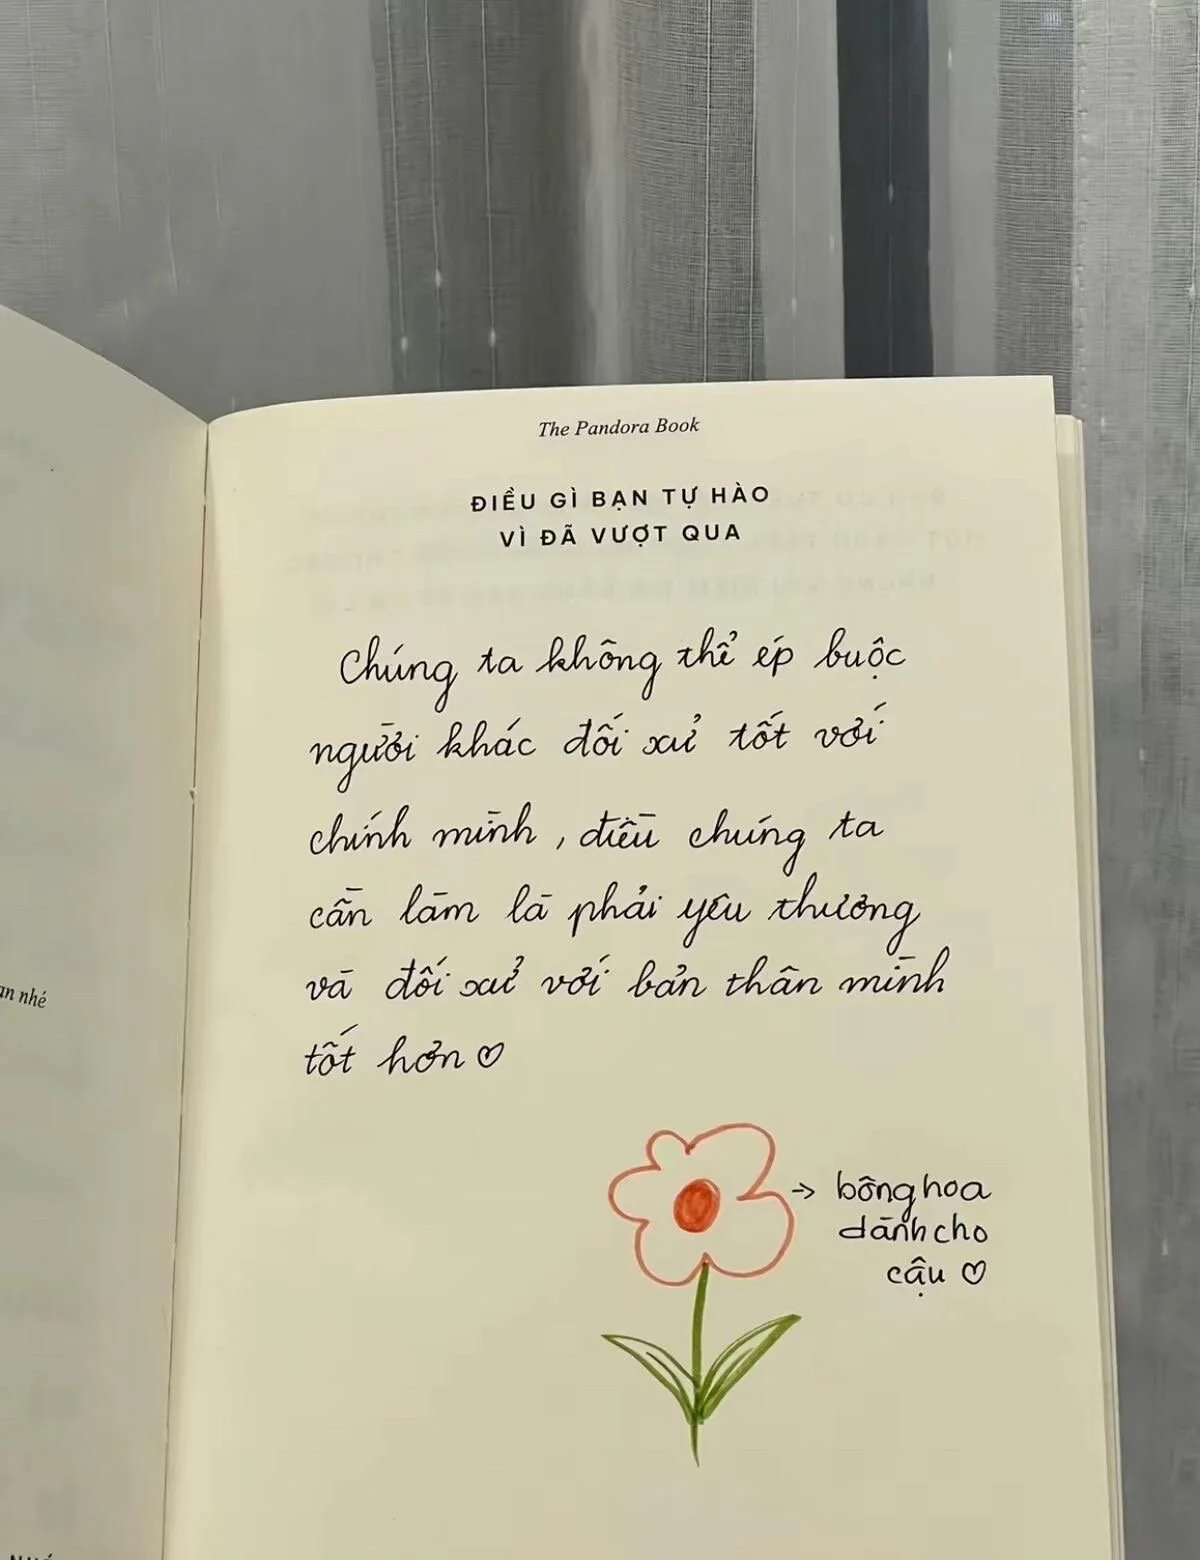 The Pandora Book
ĐIỀU GÌ BẠN TỰ HÀO
VÌ ĐÃ VƯỢT QUA
Chúng ta không thể ép buộc
người khác đối xử tốt với
chính mình, điều chúng ta
cần làm là phải yêu thương
và đối xử với bản thân mình
tốt hơn ♡
→ bông hoa
dành cho
cậu ♡
an nhé